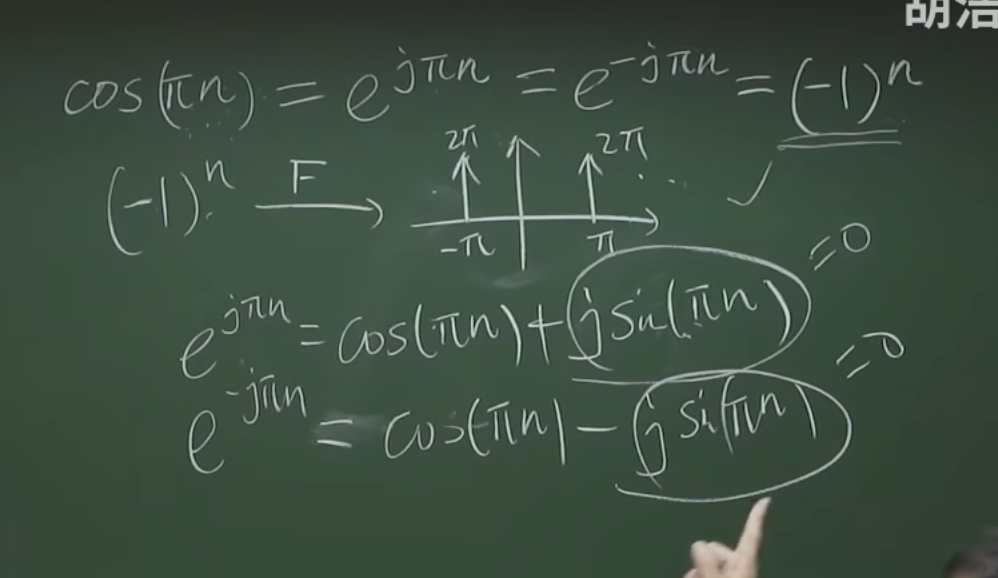 胡浩
cos(πn) = e^{jπn} = e^{-jπn} = (-1)^n
2π 2π
(-1)^n F
-π π
e^{jπn} = cos(πn) + j sin(πn) = 0
e^{-jπn} = cos(πn) - j sin(πn) = 0